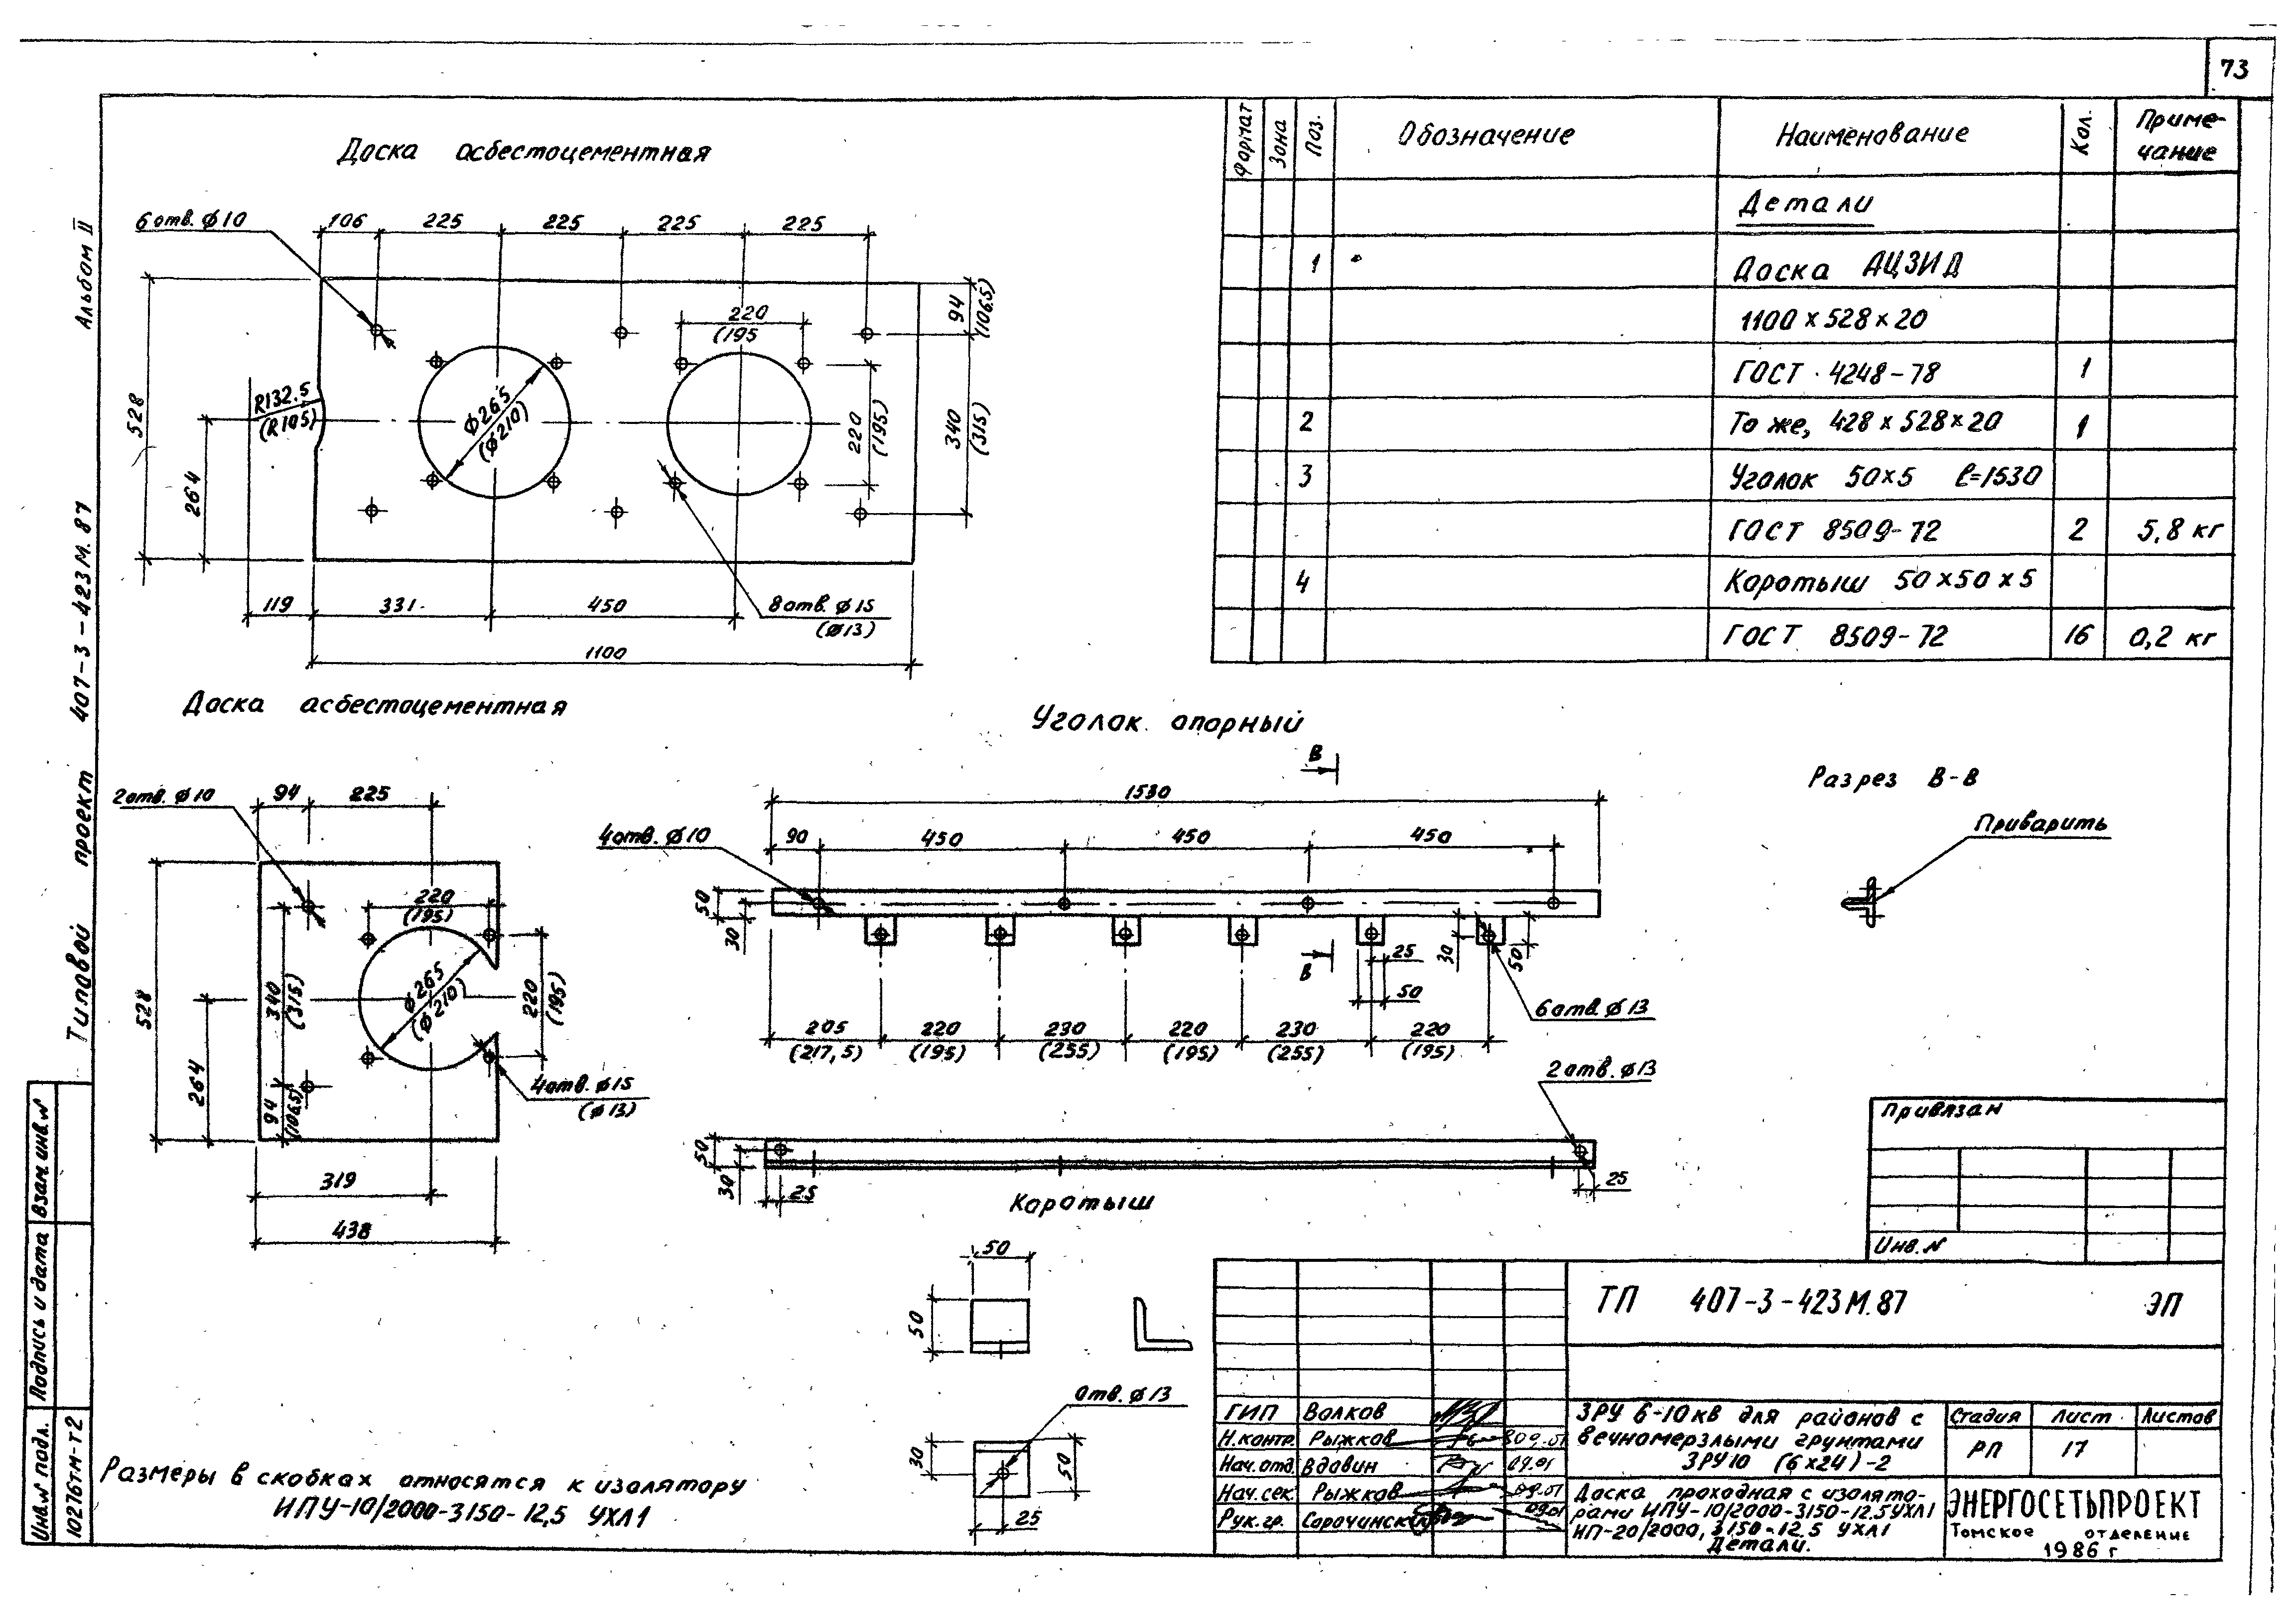 73
Альбом II
Типовой проект 407-3-423м.87
Взам. инв. №
Подпись и дата
Инв.№ подл.
10276тм-т2
Доска асбестоцементная
6 отв. ⌀10
106
225
225
225
225
94
(106.5)
220
(195
R132.5
(R105)
⌀265
(⌀210)
220
(195)
340
(315)
528
264
119
331
450
8 отв. ⌀15
(⌀13)
1100
Формат
Зона
Поз.
Обозначение
Наименование
Кол.
Приме-
чание
Детали
1
Доска АЦЭИД
1100 x 528 x 20
ГОСТ 4248-78
1
2
То же, 428 x 528 x 20
1
3
Уголок 50x5 ℓ=1530
ГОСТ 8509-72
2
5,8 кг
4
Коротыш 50x50x5
ГОСТ 8509-72
16
0,2 кг
Доска асбестоцементная
2 отв. ⌀10
94
225
220
(195)
⌀265
(⌀210)
340
(315)
220
(195)
528
264
94
(106.5)
4 отв. ⌀15
(⌀13)
319
438
Уголок опорный
В
1530
4 отв. ⌀10
90
450
450
450
50
30
В
25
50
30
50
6 отв. ⌀13
205
(217,5)
220
(195)
230
(255)
220
(195)
230
(255)
220
(195)
2 отв. ⌀13
50
30
25
25
Разрез В-В
Приварить
Коротыш
50
50
Отв. ⌀13
30
50
25
Размеры в скобках относятся к изолятору
ИПУ-10/2000-3150-12,5 УХЛ1
Привязан
Инв. №
ТП 407-3-423м.87 ЭП
ГИП Волков
Н.контр. Рыжков
Нач.отд. Вдовин 09.01
Нач.сек. Рыжков 09.01
Рук.гр. Сорочинский 09.01
ЗРУ 6-10кВ для районов с
вечномерзлыми грунтами
ЗРУ10 (6x24)-2
Стадия
Лист
Листов
РП
17
Доска проходная с изолято-
рами ИПУ-10/2000-3150-12.5УХЛ1
ИП-20/2000, 3150-12.5 УХЛ1
Детали.
ЭНЕРГОСЕТЬПРОЕКТ
Томское отделение
1986 г